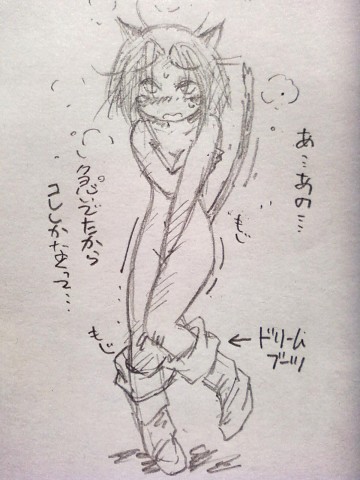 あ…あの…
急いでたから
コレしかなくって…
もじ
もじ
← ドリーム
ブーツ